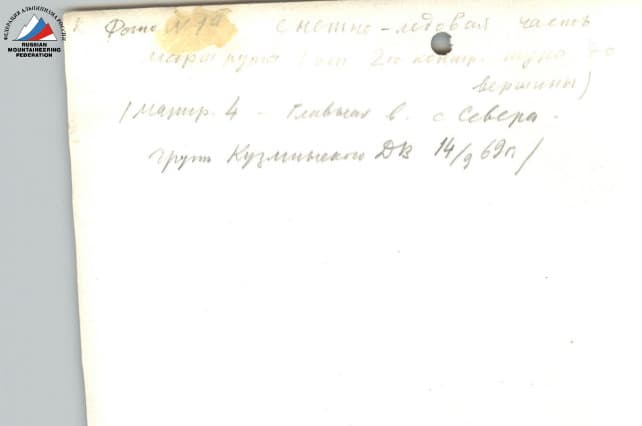 ФЕДЕРАЦИЯ АЛЬПИНИЗМА РОССИИ
RUSSIAN
MOUNTAINEERING
FEDERATION
Фото № 1а снежно-ледовая часть
маршрута (от 2го контр. тура до
вершины)
/Маршр. 4 - Главная в. с Севера.
групп Кузминского ДВ 14/9 69г/